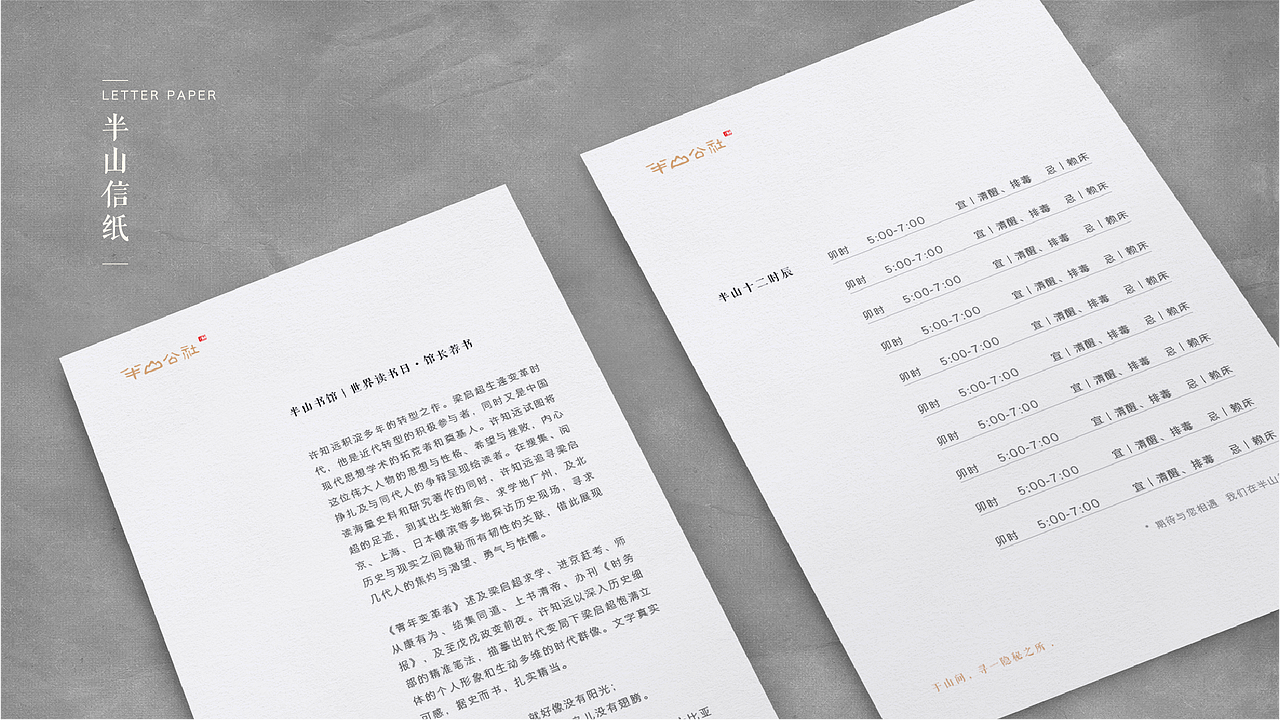 LETTER PAPER
半山信纸
半山公社
半山书馆 | 世界读书日·馆长荐书
许知远积淀多年的转型之作。梁启超生逢变革时
代，他是近代转型的积极参与者，同时又是中国
现代思想学术的拓荒者和奠基人。许知远试图将
这位伟大人物的思想与性格、希望与挫败，内心
挣扎及与同代人的争辩呈现给读者。在搜集、阅
读海量史料和研究著作的同时，许知远追寻梁启
超的足迹，到其出生地新会、求学地广州，及北
京、上海、日本横滨等多地探访历史现场，寻求
历史与现实之间隐秘而有韧性的关联，借此展现
几代人的焦灼与渴望、勇气与怯懦。
《青年变革者》述及梁启超求学、进京赶考、师
从康有为、结集同道、上书清帝、办刊《时务
报》，及至戊戌政变前夜。许知远以深入历史细
部的精准笔法，描摹出时代变局下梁启超饱满立
体的个人形象和生动多维的时代群像。文字真实
可感，据史而书，扎实精当。
就好像没有阳光；
儿没有翅膀。
比亚
半山公社
半山十二时辰
卯时 5:00-7:00 宜 | 清醒、排毒 忌 | 赖床
卯时 5:00-7:00 宜 | 清醒、排毒 忌 | 赖床
卯时 5:00-7:00 宜 | 清醒、排毒 忌 | 赖床
卯时 5:00-7:00 宜 | 清醒、排毒 忌 | 赖床
卯时 5:00-7:00 宜 | 清醒、排毒 忌 | 赖床
卯时 5:00-7:00 宜 | 清醒、排毒 忌 | 赖床
卯时 5:00-7:00 宜 | 清醒、排毒 忌 | 赖床
卯时 5:00-7:00 宜 | 清醒、排毒 忌 | 赖床
卯时 5:00-7:00 宜 | 清醒、排毒 忌 | 赖床
卯时 5:00-7:00 宜 | 清醒、排毒 忌 | 赖床
* 期待与您相遇 我们在半山
于山间，寻一隐秘之所．